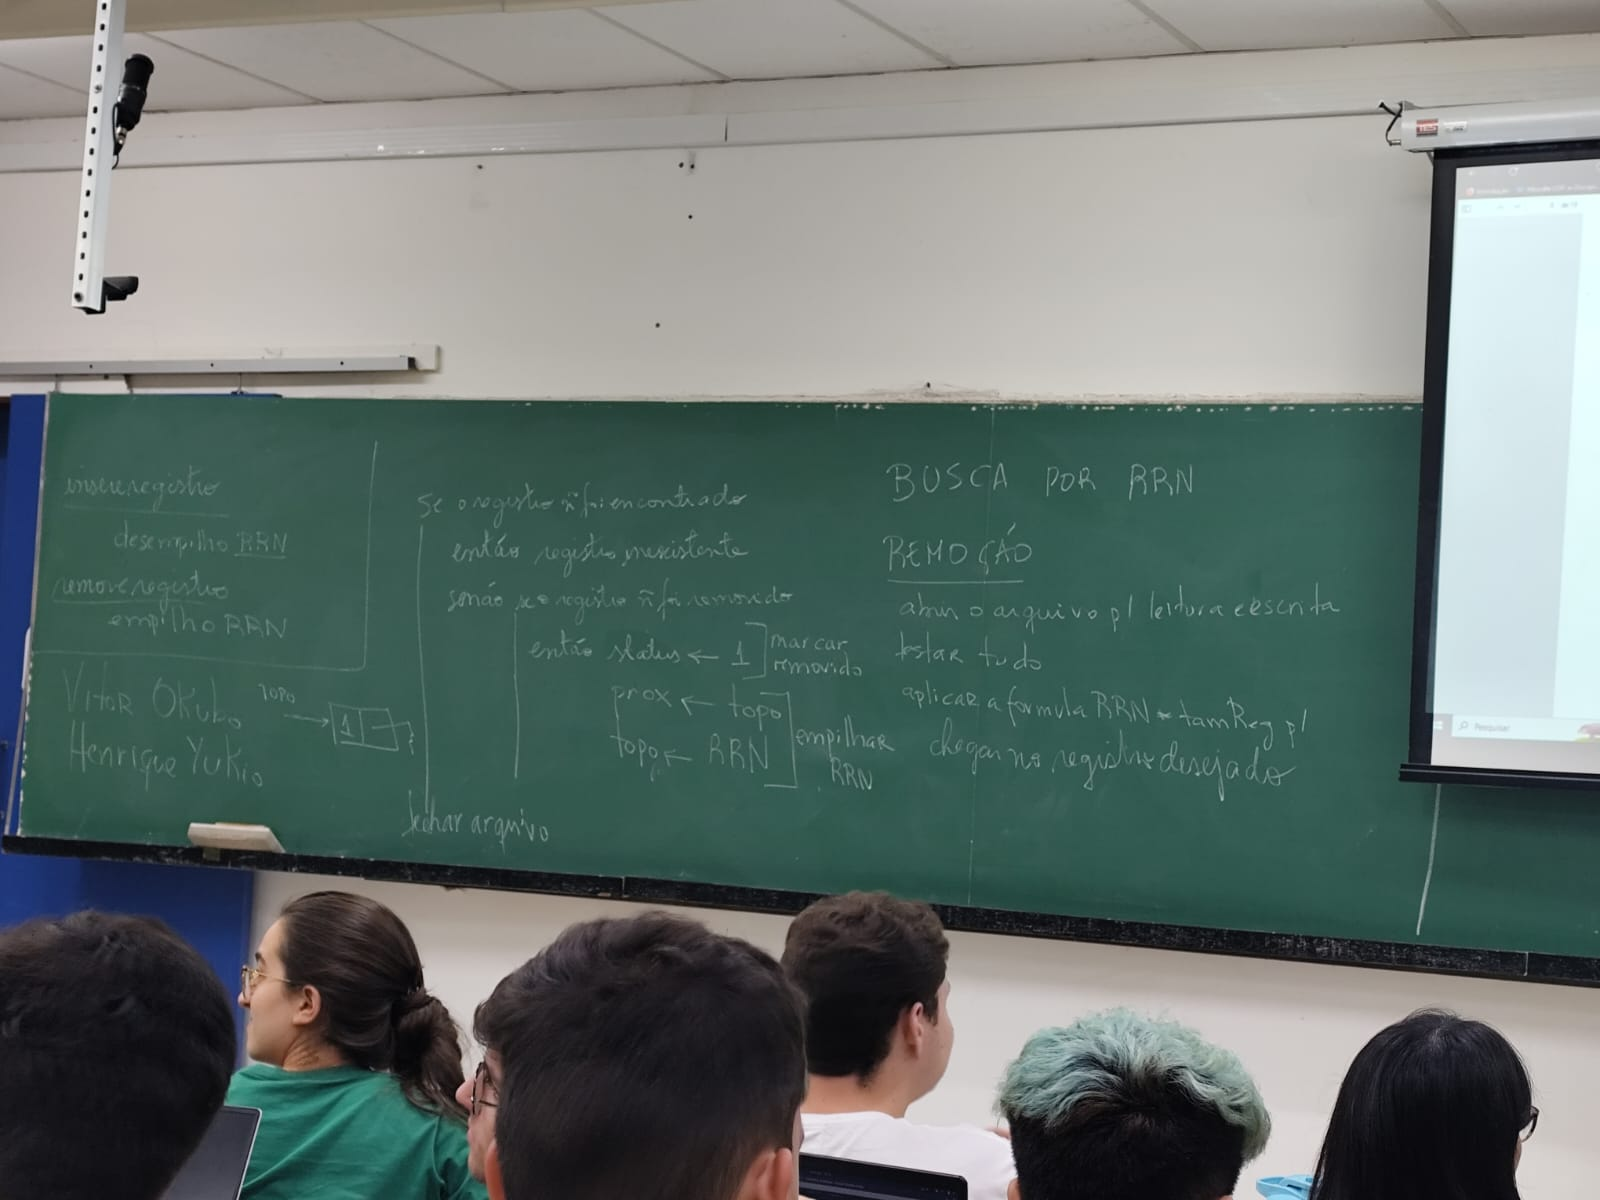 insere registro
desempilho RRN
remove registro
empilho RRN
Vitor Okubo
Henrique Yukio
TOPO
1
se o registro ñ foi encontrado
então registro inexistente
senão se o registro ñ foi removido
então status ← 1
marcar
removido
prox ← topo
topo ← RRN
empilhar
RRN
fechar arquivo
BUSCA POR RRN
REMOÇÃO
abrir o arquivo p/ leitura e escrita
testar tudo
aplicar a formula RRN * tamReg p/
chegar no registro desejado
Pesquisar